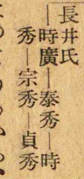 長井氏
―時廣―泰秀―時
秀―宗秀―貞秀